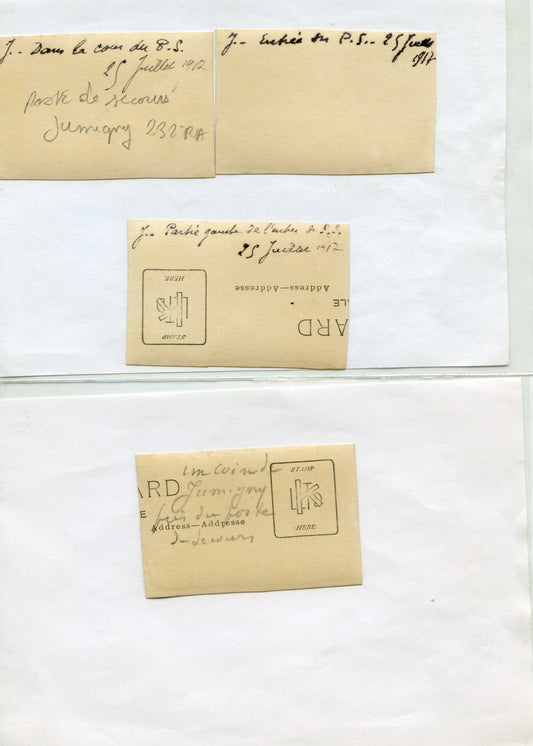 J.- Dans la cour du P.S.
25 Juillet 1917
Poste de secours
Jumigny 232 RA
J.- Entrée du P.S.- 25 Juillet
1917
J.- Partie gauche de l'entrée du P.S.
25 Juillet 1917
STAMP
HERE
Address—Addresse
ARD
un coin de
ARD Jumigny
E pris du poste
Address—Addresse
de secours
STAMP
HERE